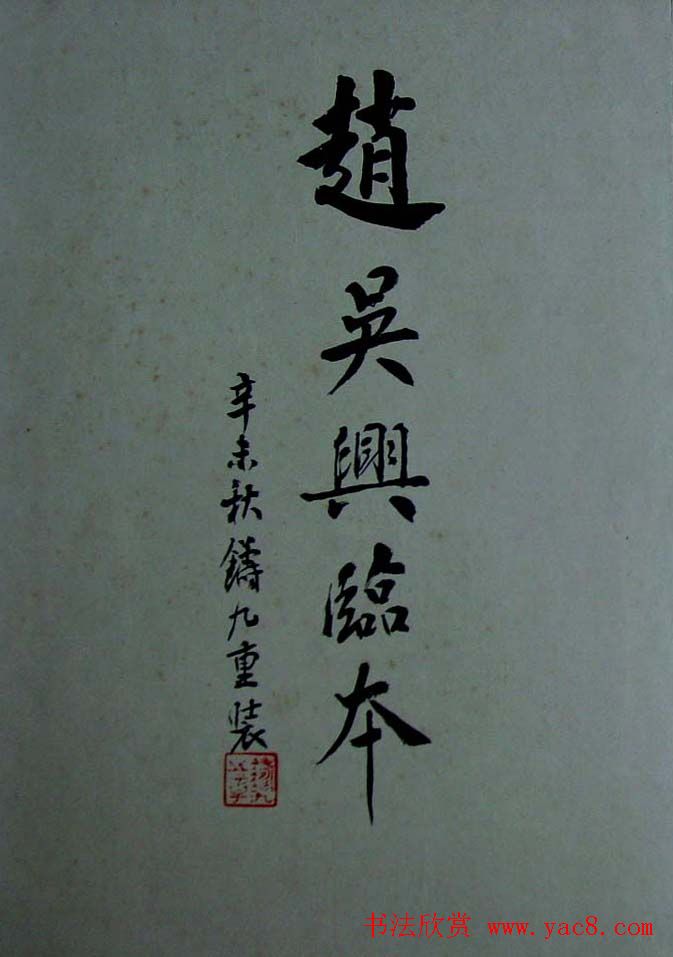 趙吳興臨本
辛未秋鑄九重裝
书法欣赏 www.yac8.com